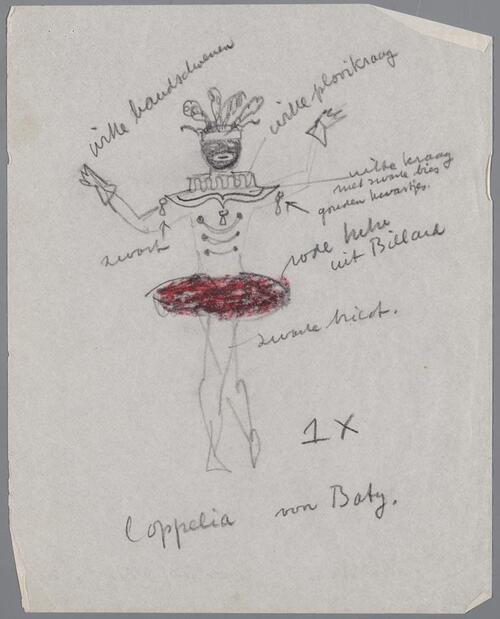 witte handschoenen
witte plooikraag
witte kraag
met zwarte bies
gouden kwastjes.
zwart
rode tutu
uit Billard
zwarte tricot.
1 x
Coppelia von Baty.